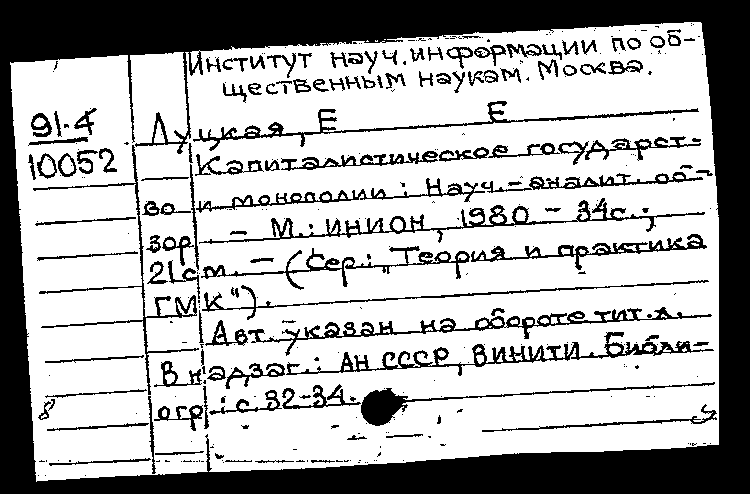 Институт науч. информации по об-
щественным наукам. Москва.
91.4
10052
Луцкая, Е Е
Капиталистическое государст-
во и монополии: Науч.-аналит. об-
зор. - М.: ИНИОН, 1980. - 34с.;
21см. - (Сер.: „Теория и практика
ГМК").
Авт. указан на обороте тит. л.
В надзаг.: АН СССР, ВИНИТИ. Библи-
огр.: с. 32-34.
8